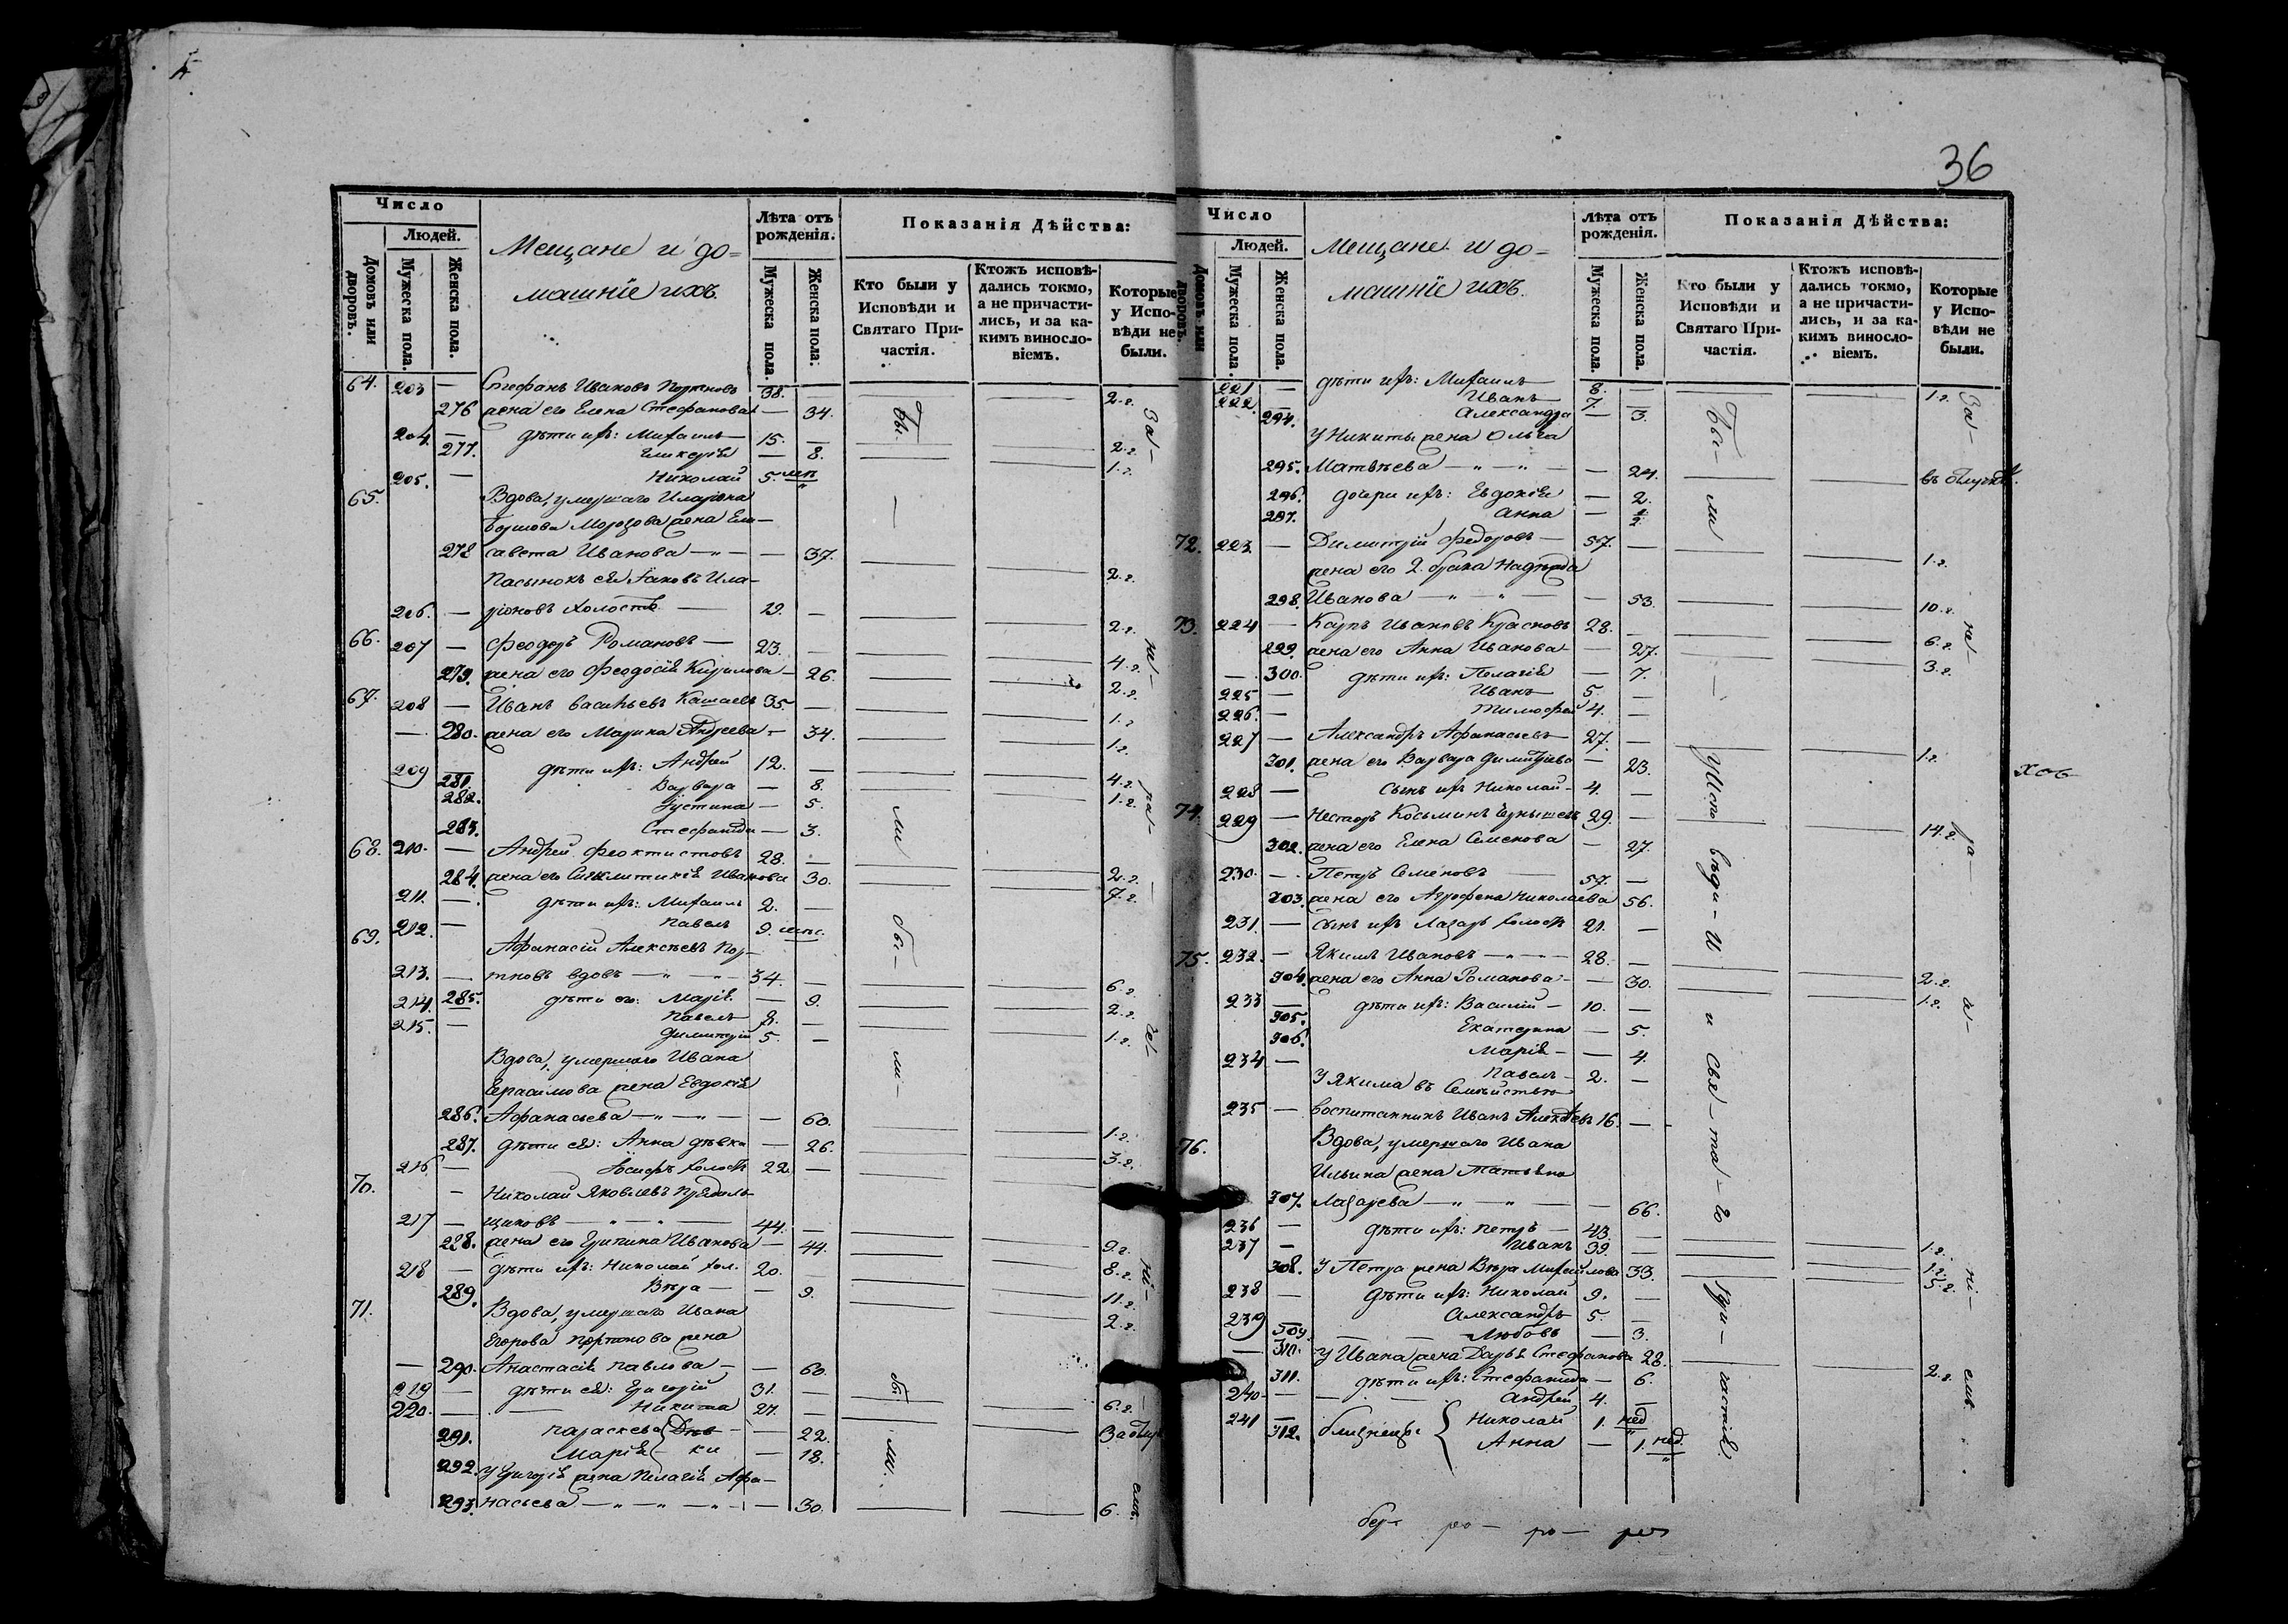 36
Число
Людей.
Домовъ или дворовъ.
Мужеска пола.
Женска пола.
Мещане и до=
машніе ихъ.
Лѣта отъ рожденія.
Мужеска пола
Женска пола.
Показанія Дѣйства:
Кто были у Исповѣди и Святаго Причастія.
Ктожъ исповѣ-
дались токмо,
а не причасти-
лись, и за ка-
кимъ винословіемъ.
Которые у Испо-
вѣди не были.
64. 203 — Стефанъ Ивановъ Портновъ 38. —
276 жена его Елена Стефанова — 34. 2.г.
204. — дѣти ихъ: Михаилъ 15. —
277. Гликерія — 8. 2.г.
205. — Николай 5. мѣс 1.г.
65. Вдова, умершаго Иларіона
Морозова жена Ели—
278 савета Иванова — 37.
Пасынокъ ея Іаковъ Ила— 2.г.
206. — ріоновъ холостъ —
66. 207 — Феодоръ Романовъ — 23. — 2.г.
279. жена его Феодосія Кирилова — 26. 4.г.
67. 208 — Иванъ Васильевъ Кашаевъ 35. — 2.г.
— 280. жена его Марина Андреева — 34. 1.г.
209 — дѣти ихъ: Андрей 12. — 1.г.
281. Варвара — 8. 4.г.
282. Іустина — 5. 1.г.
283. Стефанида — 3.
68. 210. — Андрей Феоктистовъ 28. —
284. жена его Синклитикія Иванова 30. 2.г.
211. — дѣти ихъ: Михаилъ 2. — 7.г.
212. — Павелъ 9. мѣс.
69. Афанасій Алексѣевъ Пор—
213. — тновъ вдовъ — 34. —
285. дѣти его: Марія — 9. 6.г.
214. — Павелъ 8. — 2.г.
215. — Димитрій 5. — 1.г.
Вдова, умершаго Ивана
Герасимова жена Евдокія
286. Афанасьева — 60.
287. дѣти ея: Анна дѣвка — 26. 1.г.
216 — Іосифъ холостъ 22. — 3.г.
70. — Николай Яковлевъ Прядиль—
217 — щиковъ — 44. —
228. жена его Ірипина Иванова — 44. 9.г.
218 — дѣти ихъ: Николай хол. 20. 8.г.
289. Вѣра — 9. 11.г.
71. Вдова, умершаго Ивана 2.г.
Егорова Портнова жена
— 290. Анастасія Павлова — 60.
219 — дѣти ея: Григорій 31. —
220. — Никита 27. — 6.г.
291. Параскева } Дѣв — 22.
292. Марія } ки — 18.
У Григорія жена Пелагія Афа—
293. насьева — 30. 6.
Бы.
—
ли
бы—
ли—
бы
ли.
За—
не—
ра—
че—
ні—
емъ.
Число
Людей.
Домовъ или дворовъ.
Мужеска пола.
Женска пола.
Мещане и до=
машніе ихъ.
Лѣта отъ рожденія.
Мужеска пола.
Женска пола.
Показанія Дѣйства:
Кто были у Исповѣди и Святаго Причастія.
Ктожъ исповѣ-
дались токмо,
а не причасти-
лись, и за ка-
кимъ винословіемъ.
Которые у Испо-
вѣди не были.
221 — дѣти ихъ: Михаилъ 8. — 1.г.
222. — Иванъ 7. —
294. Александра — 3.
У Никиты жена Ольга
295. Матвѣева — 24.
296. дочери ихъ: Евдокія — 2.
287. Анна — ½
72. 223. — Димитрій Федоровъ — 57. —
жена его 2. брака Надежда 1.г.
298. Иванова — 53. 10.г.
73. 224 — Карпъ Ивановъ Красновъ 28. —
299. жена его Анна Иванова — 27. 6.г.
— 300. дѣти ихъ: Пелагія — 7. 3.г.
225 — Иванъ 5. —
226. — Тимофей 4. —
227 — Александръ Афанасьевъ 27. —
301. жена его Варвара Димитріева — 23. 1.г.
228 — Сынъ ихъ Николай — 4. —
74. 229 — Несторъ Косьминъ 29. —
302. жена его Елена Семенова — 27. 14.г.
230. — Петръ Семеновъ 57. —
303. жена его Агрофена Николаева 56.
231. — сынъ ихъ Лазарь холостъ 21. —
75. 232. — Якимъ Ивановъ — 28. —
304. жена его Анна Романова — 30. 2.г.
233 — дѣти ихъ: Василій — 10. — 1.г.
305. Екатерина — 5.
306. Марія — 4.
234 — Павелъ — 2. —
У Якима въ Семействѣ
235 — воспитанникъ Иванъ 16. —
76. Вдова, умершаго Ивана
Ильина жена Татьяна
307. Лазарева — 66.
236 — дѣти ихъ: Петръ — 43. —
237 — Иванъ 39. — 1.г.
308. У Петра жена Вѣра Михайлова 33. 1.г.
238 — дѣти ихъ: Николай 9. — 5.г.
239 — Александръ 5. —
309. Любовь — 3.
— 310. У Ивана жена Дарья Стефанова 28.
311. дѣти ихъ: Стефанида — 6. 2.г.
240. — Андрей 4. —
241 — близнецы { Николай 1. нед
312. Анна — 1. нед.
Бы—
ли
—
у Испо
вѣди—
и
Свя—
та—
го
при—
частія.
За—
не—
ра—
ні—
емъ.